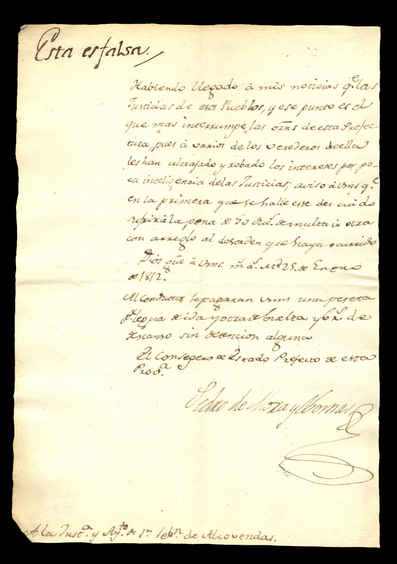 Esta es falsa.
Habiendo llegado á mis noticias q.e las
Justicias de esos Pueblos, y ese punto es el
que mas interrumpe las orns. de esta Prefec-
tura pues á varios de los Verederos de ella
les han ultrajado y robado los intereses por po-
ca inteligencia de las Justicias, aviso á Vms q.e
en la primera que se halle este des
la pena de 50 Duc.s de multa
con arreglo al desorden que haya
Dios güe á Vms m.s a.s M.d 25 de Enero
de 1812.
Al Conductor le pagaran Vms una peseta
legua de ida y otra de buelta y
sin detencion alguna
El Consegero de Estado Prefecto de esta
Prov.a
Pedro de Mora y Lomas
A la Just.a y Ay.to de S.n Seb.n de Alcovendas.